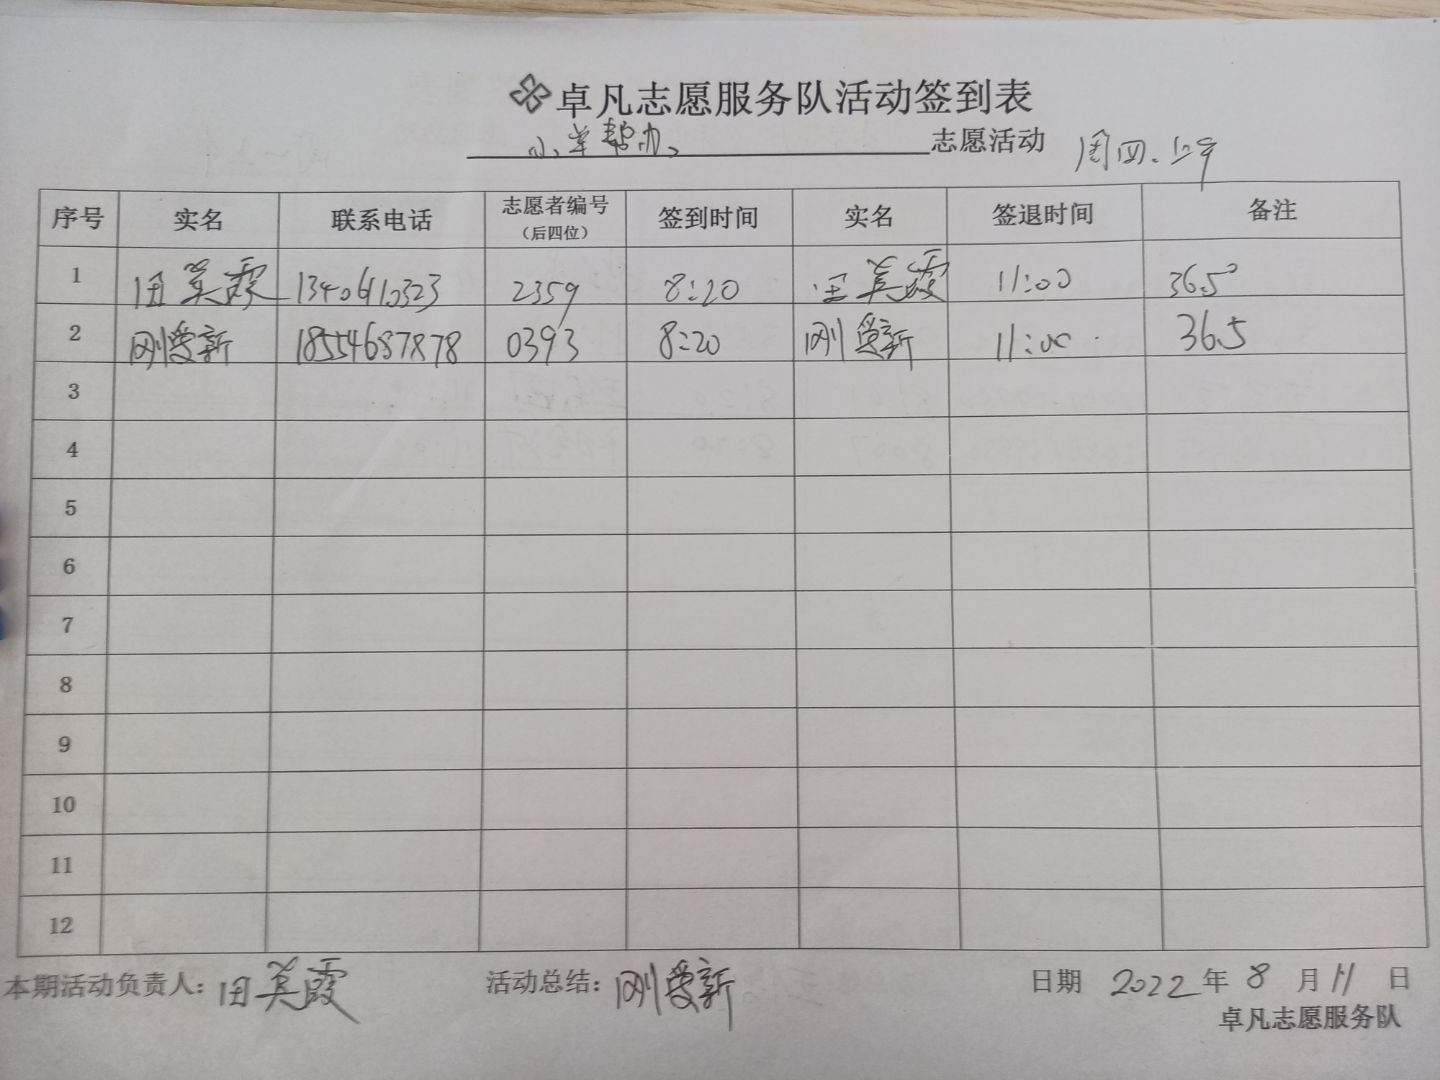 卓凡志愿服务队活动签到表
小单帮办、志愿活动 周四、上午
序号 实名 联系电话 志愿者编号（后四位） 签到时间 实名 签退时间 备注
1 田美霞 2359 8:20 田美霞 11:00 36.5°
2 刚爱新 18554687878 0393 8:20 刚爱新 11:00 36.5
3
4
5
6
7
8
9
10
11
12
本期活动负责人：田美霞 活动总结：刚爱新 日期 2022年8月11日
卓凡志愿服务队